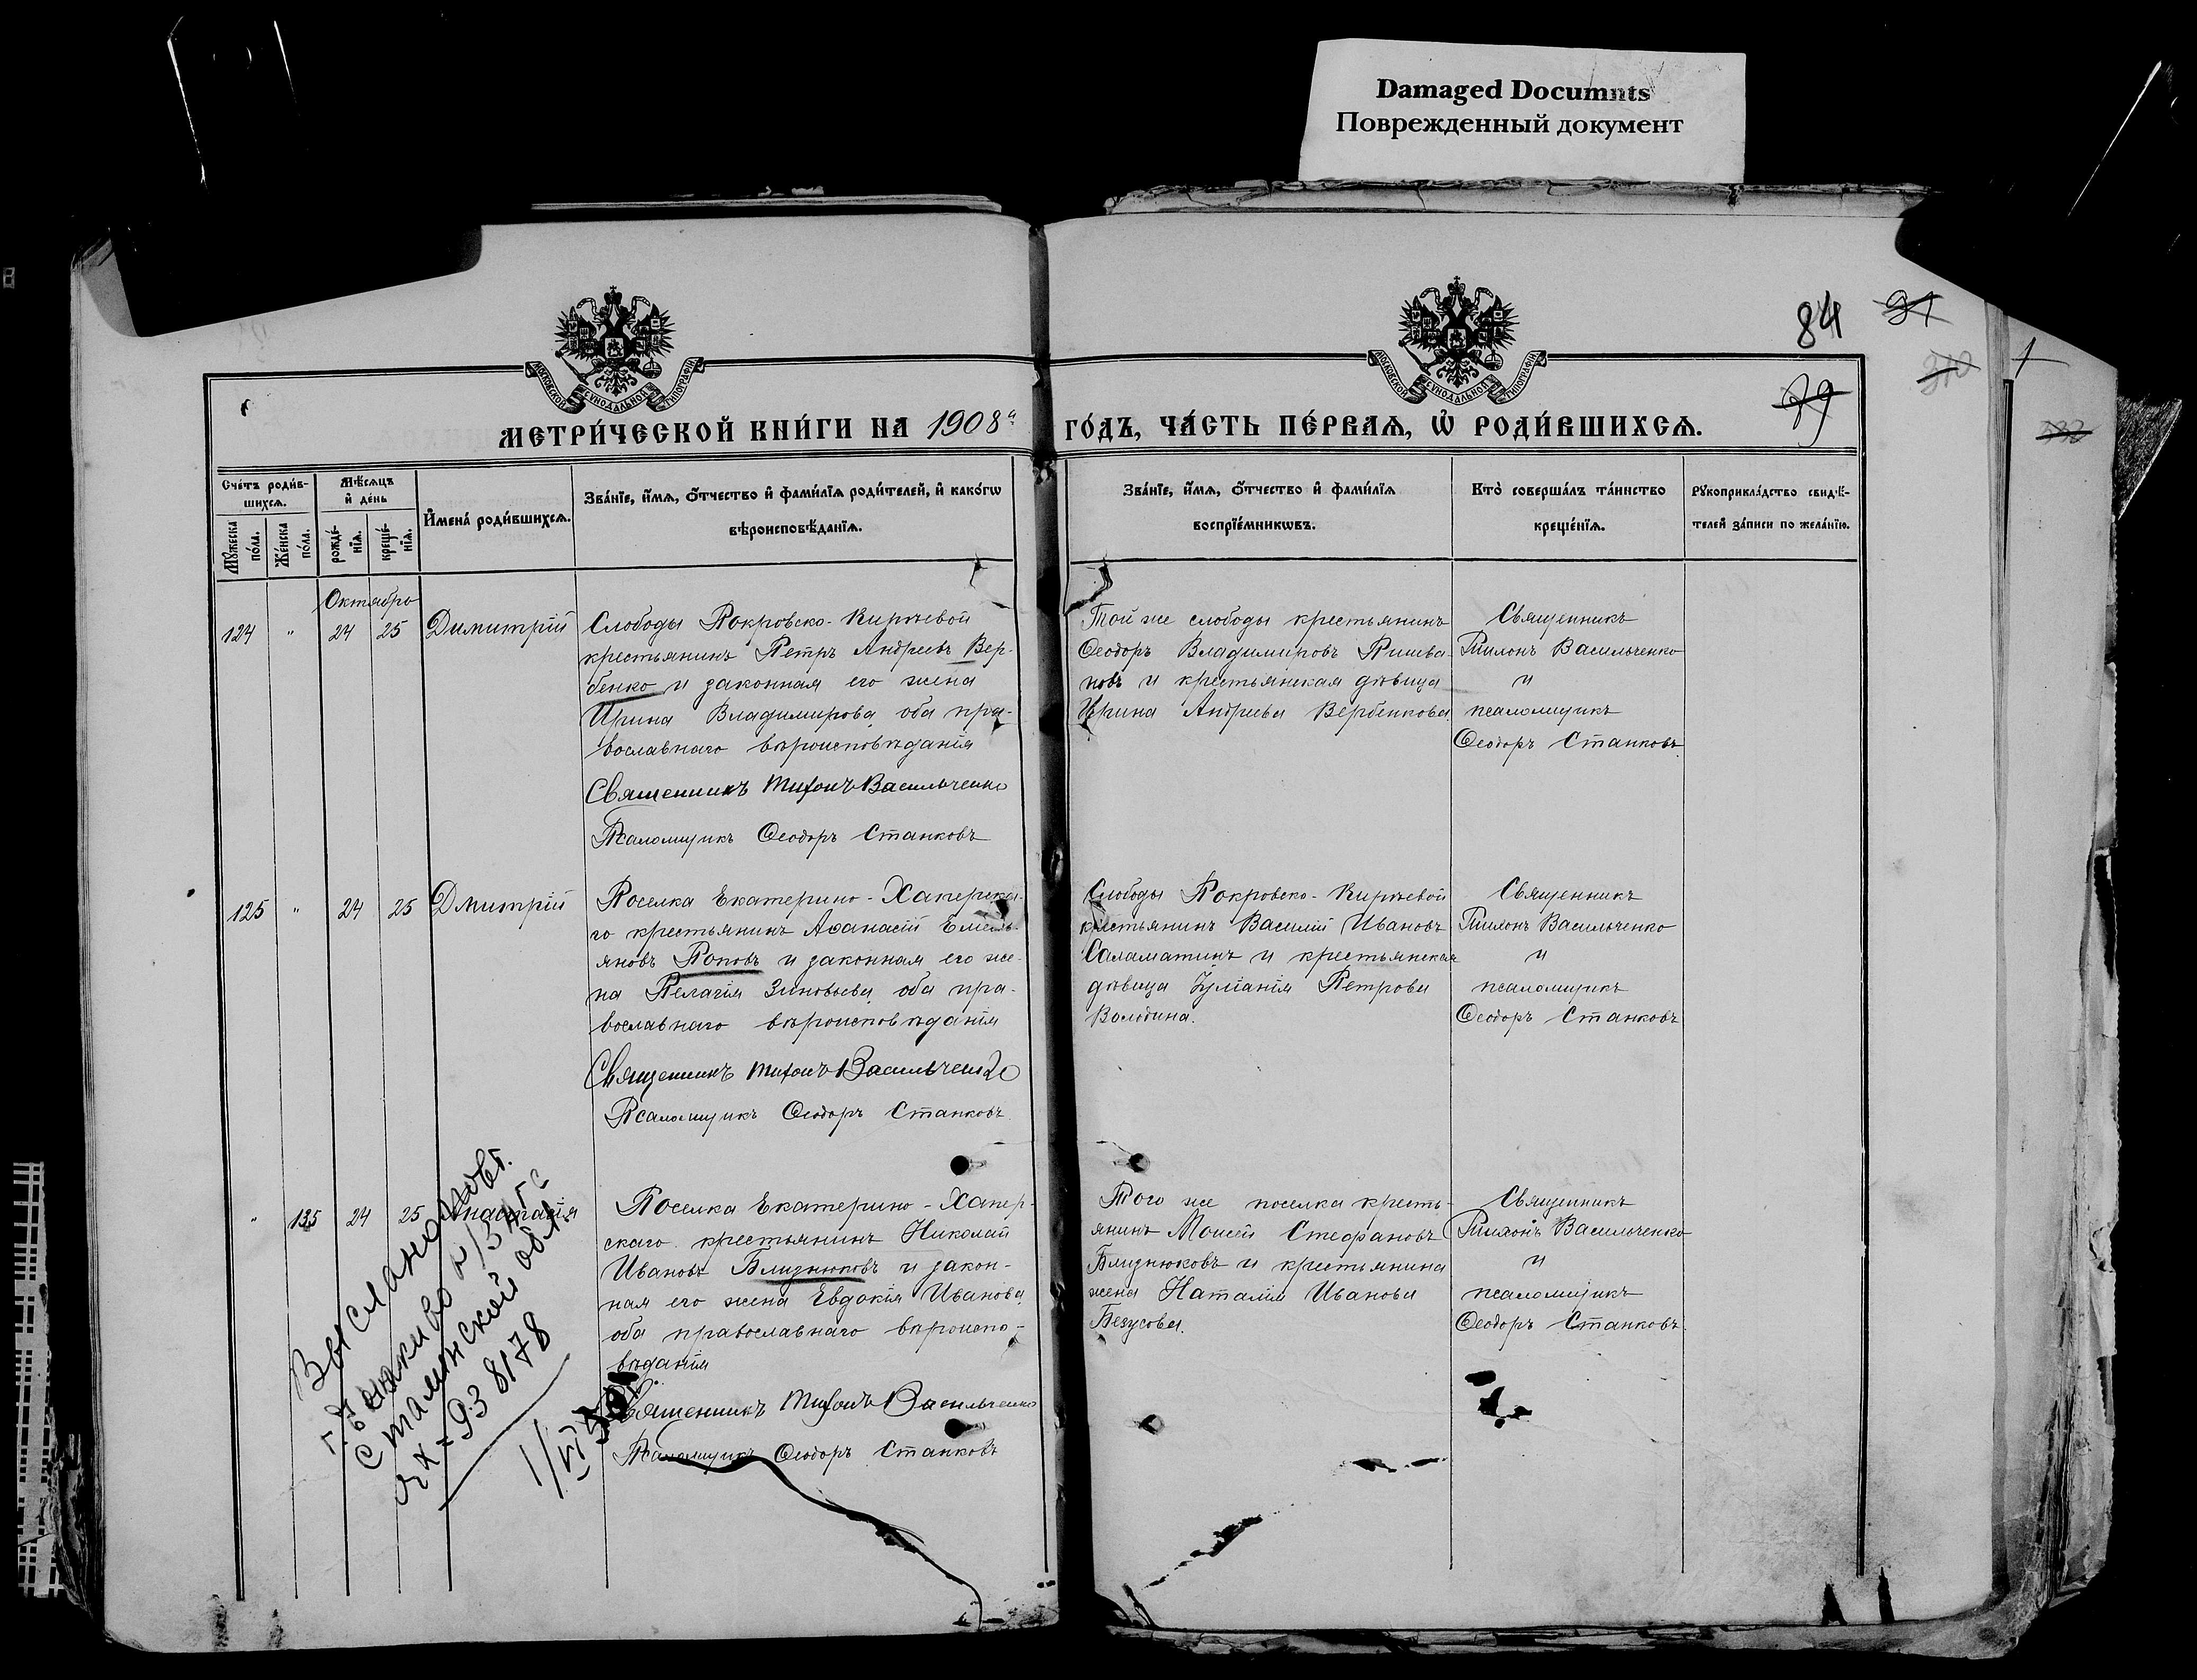 Damaged Documnts
Поврежденный документ
84
91
310
79
МОСКОВСКОЙ СУНОДАЛЬНОЙ ТИПОГРАФІИ
МОСКОВСКОЙ СУНОДАЛЬНОЙ ТИПОГРАФІИ
МЕТРИ́ЧЕСКОЙ КНИ́ГИ НА 1908й ГО́ДЪ, ЧА́СТЬ ПЕ́РВАѦ, Ѡ҆ РОДИ́ВШИХСѦ.
Сче́тъ роди́в-
шихсѧ.
Мѣ́сѧцъ
и҆ де́нь
Мꙋ́жеска по́ла.
Же́нска по́ла.
рожде́-
нїѧ.
креще́-
нїѧ.
И҆мена̀ роди́вшихсѧ.
Зва́нїе, и҆́мѧ, ѻ҆́тчество и҆ фами́лїѧ роди́телей, и҆ како́гѡ
вѣроисповѣ́данїѧ.
Зва́нїе, и҆́мѧ, ѻ҆́тчество и҆ фами́лїѧ
воспрїе́мникѡвъ.
Кто̀ соверша́лъ та́инство
креще́нїѧ.
Рꙋкоприкла́дство свидѣ́-
телей за́писи по жела́нїю.
Октябрь
124 " 24 25 Димитрій
Слободы Покровско-Киреевой
крестьянинъ Петръ Андреевъ Вер-
бенко и законная его жена
Ирина Владимирова, оба пра-
вославнаго вѣроисповѣданія
Священникъ Тихонъ Васильченко
Псаломщикъ Ѳеодоръ Станковъ
Той же слободы крестьянинъ
Ѳеодоръ Владимировъ
и крестьянская дѣвица
Ирина Андреева Вербенкова.
Священникъ
Тихонъ Васильченко
и
псаломщикъ
Ѳеодоръ Станковъ
125 " 24 25 Дмитрій
Поселка Екатерино-Хаперска-
го крестьянинъ Аѳанасій Емель-
яновъ Поповъ и законная его же-
на Пелагія Зиновьева, оба пра-
вославнаго вѣроисповѣданія
Священникъ Тихонъ Васильченко
Псаломщикъ Ѳеодоръ Станковъ
Слободы Покровско-Киреевой
крестьянинъ Василій Ивановъ
Саламатинъ и крестьянская
дѣвица Іуліанія Петрова
Володина.
Священникъ
Тихонъ Васильченко
и
псаломщикъ
Ѳеодоръ Станковъ
" 135 24 25 Анастасія
Поселка Екатерино-Хапер-
скаго крестьянинъ Николай
Ивановъ Близнюковъ и закон-
ная его жена Евдокія Иванова,
оба православнаго вѣроиспо-
вѣданія
Священникъ Тихонъ Васильченко
Псаломщикъ Ѳеодоръ Станковъ
Того же поселка кресть-
янинъ Моисей Стефановъ
Близнюковъ и крестьянина
жена Наталія Иванова
Безусова.
Священникъ
Тихонъ Васильченко
и
псаломщикъ
Ѳеодоръ Станковъ.
Выслано
г. Енакиево
Сталинской обл.
93 8178